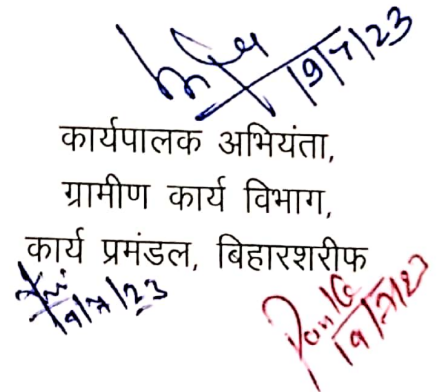 19/7/23
कार्यपालक अभियंता,
ग्रामीण कार्य विभाग,
कार्य प्रमंडल, बिहारशरीफ
19/7/23
19/7/23